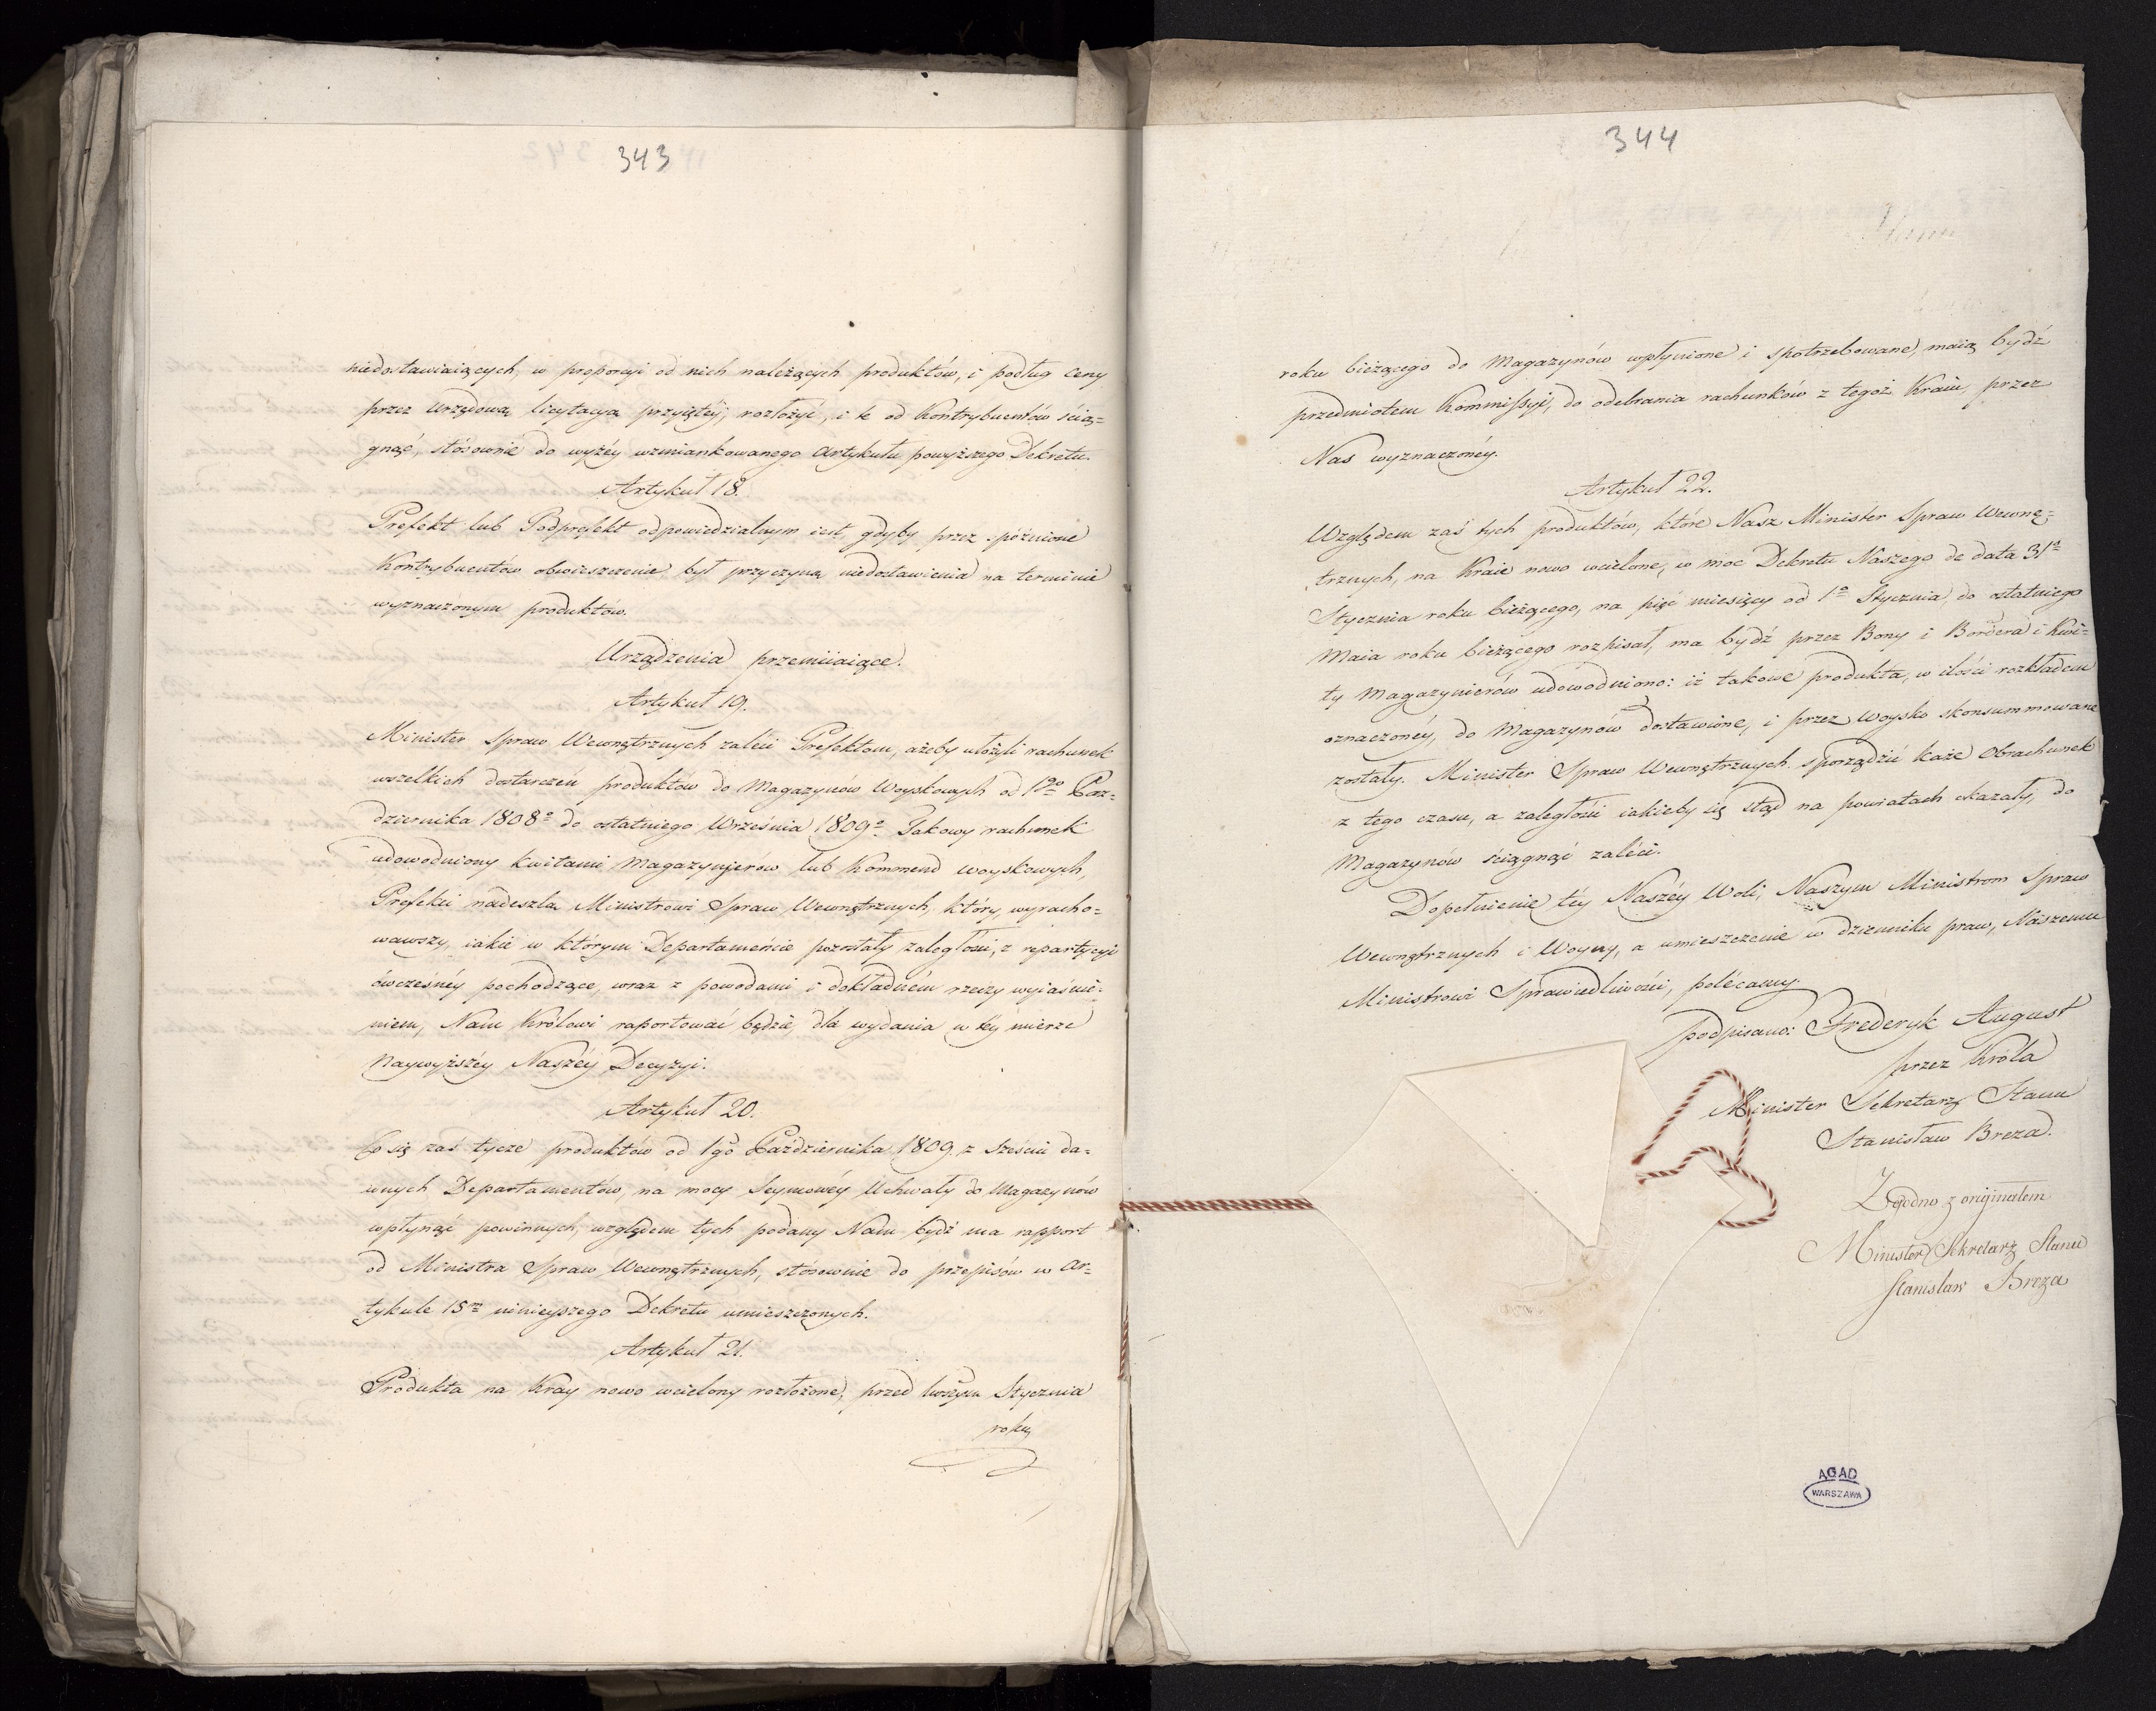 343
niedostawiaiących, w proporcyi od nich należących produktów, i podług ceny
przez urzędową licytacyą przyiętéy, rozłożyć, i te od Kontrybuentów ścią=
gnąć, stósownie do wyżéy wzmiankowanego artykułu powyższego Dekretu.
Artykuł 18.
Prefekt lub Podprefekt odpowiedzialnym iest, gdyby przez spóźnione
Kontrybuentów obwieszczenie, był przyczyną niedostawienia na terminie
wyznaczonym produktów.
Urządzenia przemiiaiące.
Artykuł 19.
Minister Spraw Wewnętrznych zaleci Prefektom, ażeby ułożyli rachunek
wszelkich dostarczeń produktów do Magazynów Woyskowych od 1go Paź=
dziernika 1808o do ostatniego Września 1809o. Takowy rachunek
udowodniony kwitami Magazynierów lub Kommend woyskowych,
Prefekci nadeszlą Ministrowi Spraw Wewnętrznych, który, wyracho=
wawszy, iakie w którym Departamencie pozostały zaległości, z repartycyi
ówcześnéy pochodzące, wraz z powodami i dokładném rzeczy wyiaśnie=
niem, Nam Królowi raportować będzie, dla wydania w téy mierze
Naywyższéy Naszéy Decyzyi.
Artykuł 20.
Co się zaś tycze produktów od 1go Października 1809. z sześciu da=
wnych Departamentów, na mocy Seymowéy Uchwały do Magazynów
wpłynąć powinnych, względem tych podany Nam bydź ma rapport
od Ministra Spraw Wewnętrznych, stósownie do przepisów w ar=
tykule 15m ninieyszego Dekretu umieszczonych.
Artykuł 21.
Produkta na Kray nowo wcielony rozłożone, przed 1wszym Stycznia
roku
344
roku bieżącego do Magazynów wpłynione i spotrzebowane, maią bydź
przedmiotem Kommissyi, do odebrania rachunków z tegoż Kraiu, przez
Nas wyznaczonéy.
Artykuł 22.
Względem zaś tych produktów, które Nasz Minister Spraw Wewnę=
trznych, na Kraie nowo wcielone, w moc Dekretu Naszego de data 31a
Stycznia roku bieżącego, na pięć miesięcy od 1o Stycznia do ostatniego
Maia roku bieżącego rozpisał, ma bydź przez Bony i Bordera i Kwi=
ty Magazynierów udowodniono: iż takowe produkta, w ilości rozkładem
oznaczonéy, do Magazynów dostawione, i przez woysko skonsummowane
zostały. Minister Spraw Wewnętrznych sporządzić każe Obrachunek
z tego czasu, a zaległości iakieby się stąd na powiatach okazały, do
Magazynów ściągnąć zaleci.
Dopełnienie téy Naszéy Woli, Naszym Ministrom Spraw
Wewnętrznych i Woyny, a umieszczenie w dzienniku praw, Naszemu
Ministrowi Sprawiedliwości, polécamy.
podpisano: Frederyk August
przez Króla
Minister Sekretarz Stanu
Stanisław Breza.
Zgodno z oryginałem
Minister Sekretarz Stanu
Stanisław Breza
AGAD
WARSZAWA